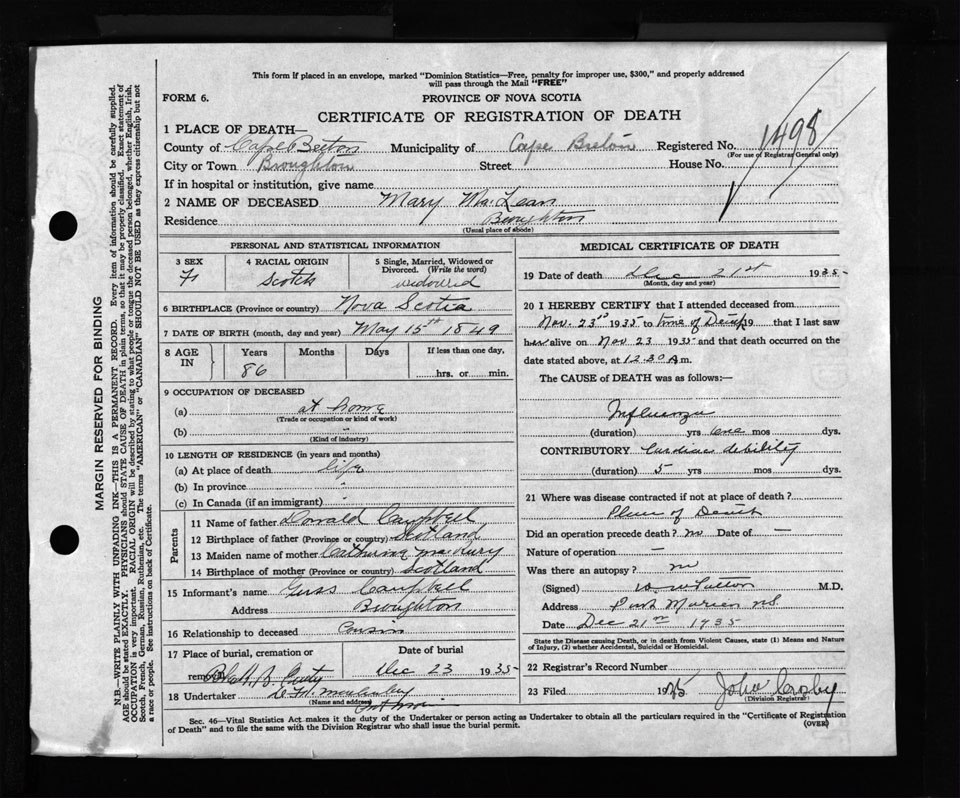 This form if placed in an envelope, marked "Dominion Statistics—Free, penalty for improper use, $300," and properly addressed
will pass through the Mail "FREE"
FORM 6.
PROVINCE OF NOVA SCOTIA
CERTIFICATE OF REGISTRATION OF DEATH
1 PLACE OF DEATH—
County of Cape Breton Municipality of Cape Breton Registered No. 1498
(For use of Registrar General only)
City or Town Broughton Street House No.
If in hospital or institution, give name
2 NAME OF DECEASED Mary MacLean
Residence Broughton
(Usual place of abode)
PERSONAL AND STATISTICAL INFORMATION
3 SEX 4 RACIAL ORIGIN 5 Single, Married, Widowed or
Divorced. (Write the word)
F Scotch widowed
6 BIRTHPLACE (Province or country) Nova Scotia
7 DATE OF BIRTH (month, day and year) May 15th 1849
8 AGE IN Years Months Days If less than one day,
86 hrs. or min.
9 OCCUPATION OF DECEASED
(a) at home
(Trade or occupation or kind of work)
(b) "
(Kind of industry)
10 LENGTH OF RESIDENCE (in years and months)
(a) At place of death life
(b) In province "
(c) In Canada (if an immigrant) "
Parents
11 Name of father Donald Campbell
12 Birthplace of father (Province or country) Scotland
13 Maiden name of mother Catherine
14 Birthplace of mother (Province or country) Scotland
15 Informant's name Guss Campbell
Address Broughton
16 Relationship to deceased Cousin
17 Place of burial, cremation or Date of burial
removal Dec 23 1935
18 Undertaker
(Name and address)
MEDICAL CERTIFICATE OF DEATH
19 Date of death Dec 21st 1935
(Month, day and year)
20 I HEREBY CERTIFY that I attended deceased from
Nov. 23rd 1935 to time of Death 19 that I last saw
her alive on Nov 23 1935 and that death occurred on the
date stated above, at 12.30 A m.
The CAUSE of DEATH was as follows:
Influenza
(duration) yrs one mos dys.
CONTRIBUTORY Cardiac debility
(duration) 5 yrs mos dys.
21 Where was disease contracted if not at place of death?
Place of Death
Did an operation precede death? no Date of —
Nature of operation —
Was there an autopsy? no
(Signed) M.D.
Address Port Morien N.S.
Date Dec 21st 1935
State the Disease causing Death, or in death from Violent Causes, state (1) Means and Nature
of Injury, (2) whether Accidental, Suicidal or Homicidal.
22 Registrar's Record Number
23 Filed 1935 John Crosby
(Division Registrar)
Sec. 46—Vital Statistics Act makes it the duty of the Undertaker or person acting as Undertaker to obtain all the particulars required in the "Certificate of Registration
of Death" and to file the same with the Division Registrar who shall issue the burial permit.
(OVER)
MARGIN RESERVED FOR BINDING
N.B.—WRITE PLAINLY WITH UNFADING INK—THIS IS A PERMANENT RECORD. Every item of information should be carefully supplied.
AGE should be stated EXACTLY. PHYSICIANS should STATE CAUSE OF DEATH in plain terms, so that it may be properly classified. Exact statement of
OCCUPATION is very important. RACIAL ORIGIN will be described by stating to what people or tongue the deceased person belonged, whether English, Irish,
Scotch, French, German, Russian, Ruthenian, etc. The terms "AMERICAN" or "CANADIAN" SHOULD NOT BE USED as they express citizenship but not
a race or people. See instructions on back of Certificate.